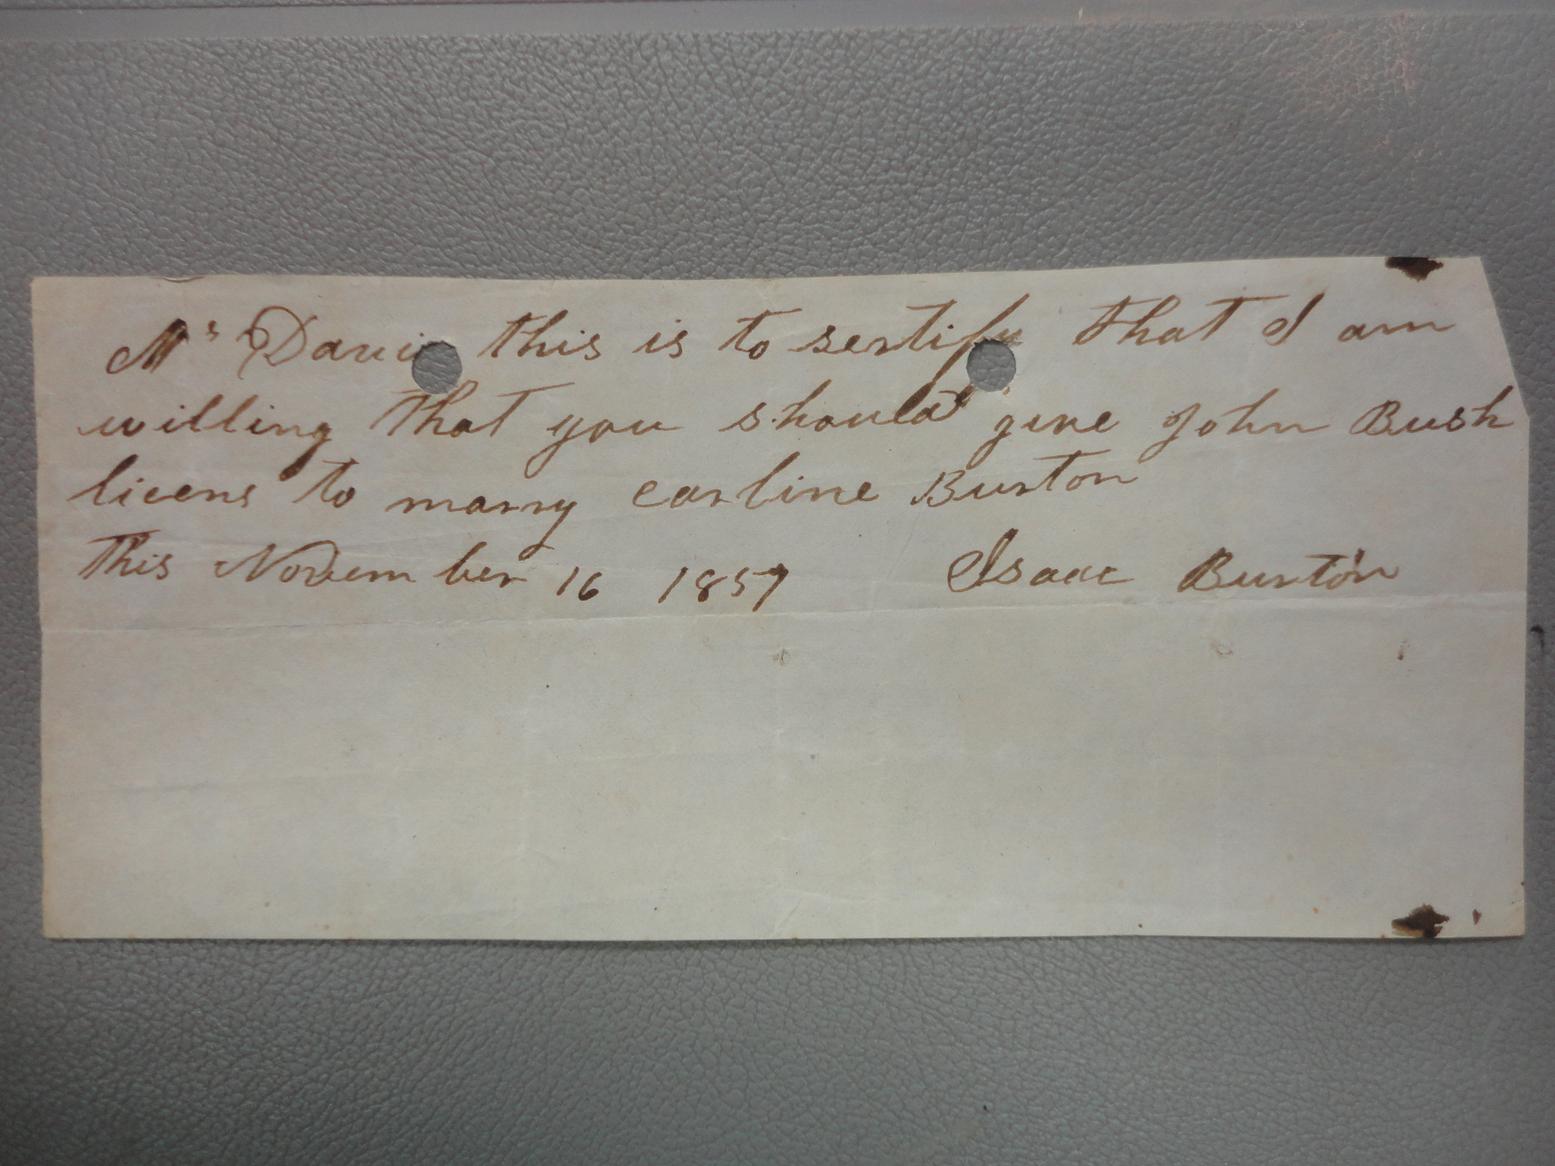 Ms Davi this is to sertify that I am
willing that you should give John Bush
licens to marry carline Burton
this November 16 1857 Isaac Burton